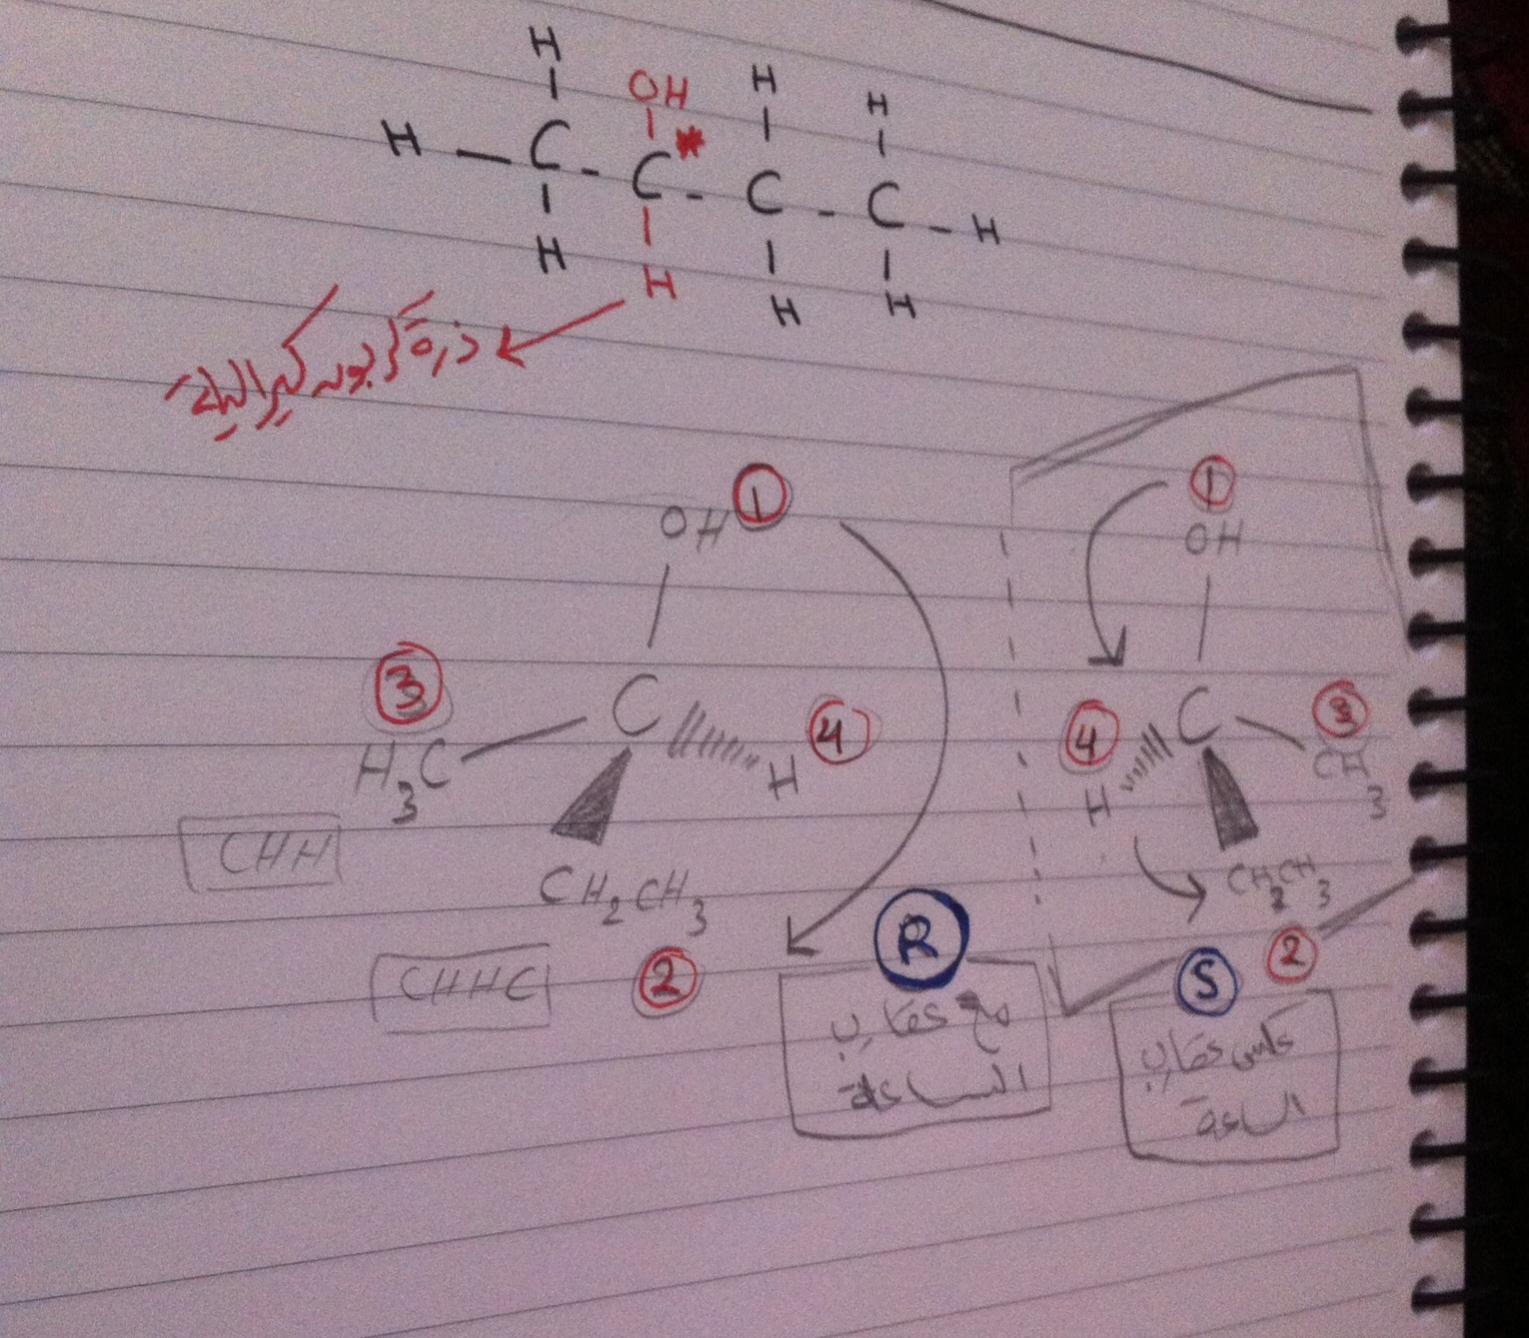 H H H
OH
H — C - C* - C - C - H
H H H H
ذرة كربون كيرالية
OH ① ① OH
③ H₃C C H ④ ④ H C CH₃ ③
CHH
CH₂CH₃ CH₂CH₃
CHHC ② R S ②
مع عقارب الساعة
عكس عقارب الساعة